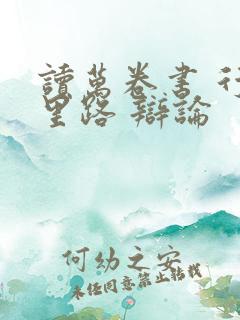 讀萬卷書 行
里路 辯論
何幼之安
未经同意禁止转载